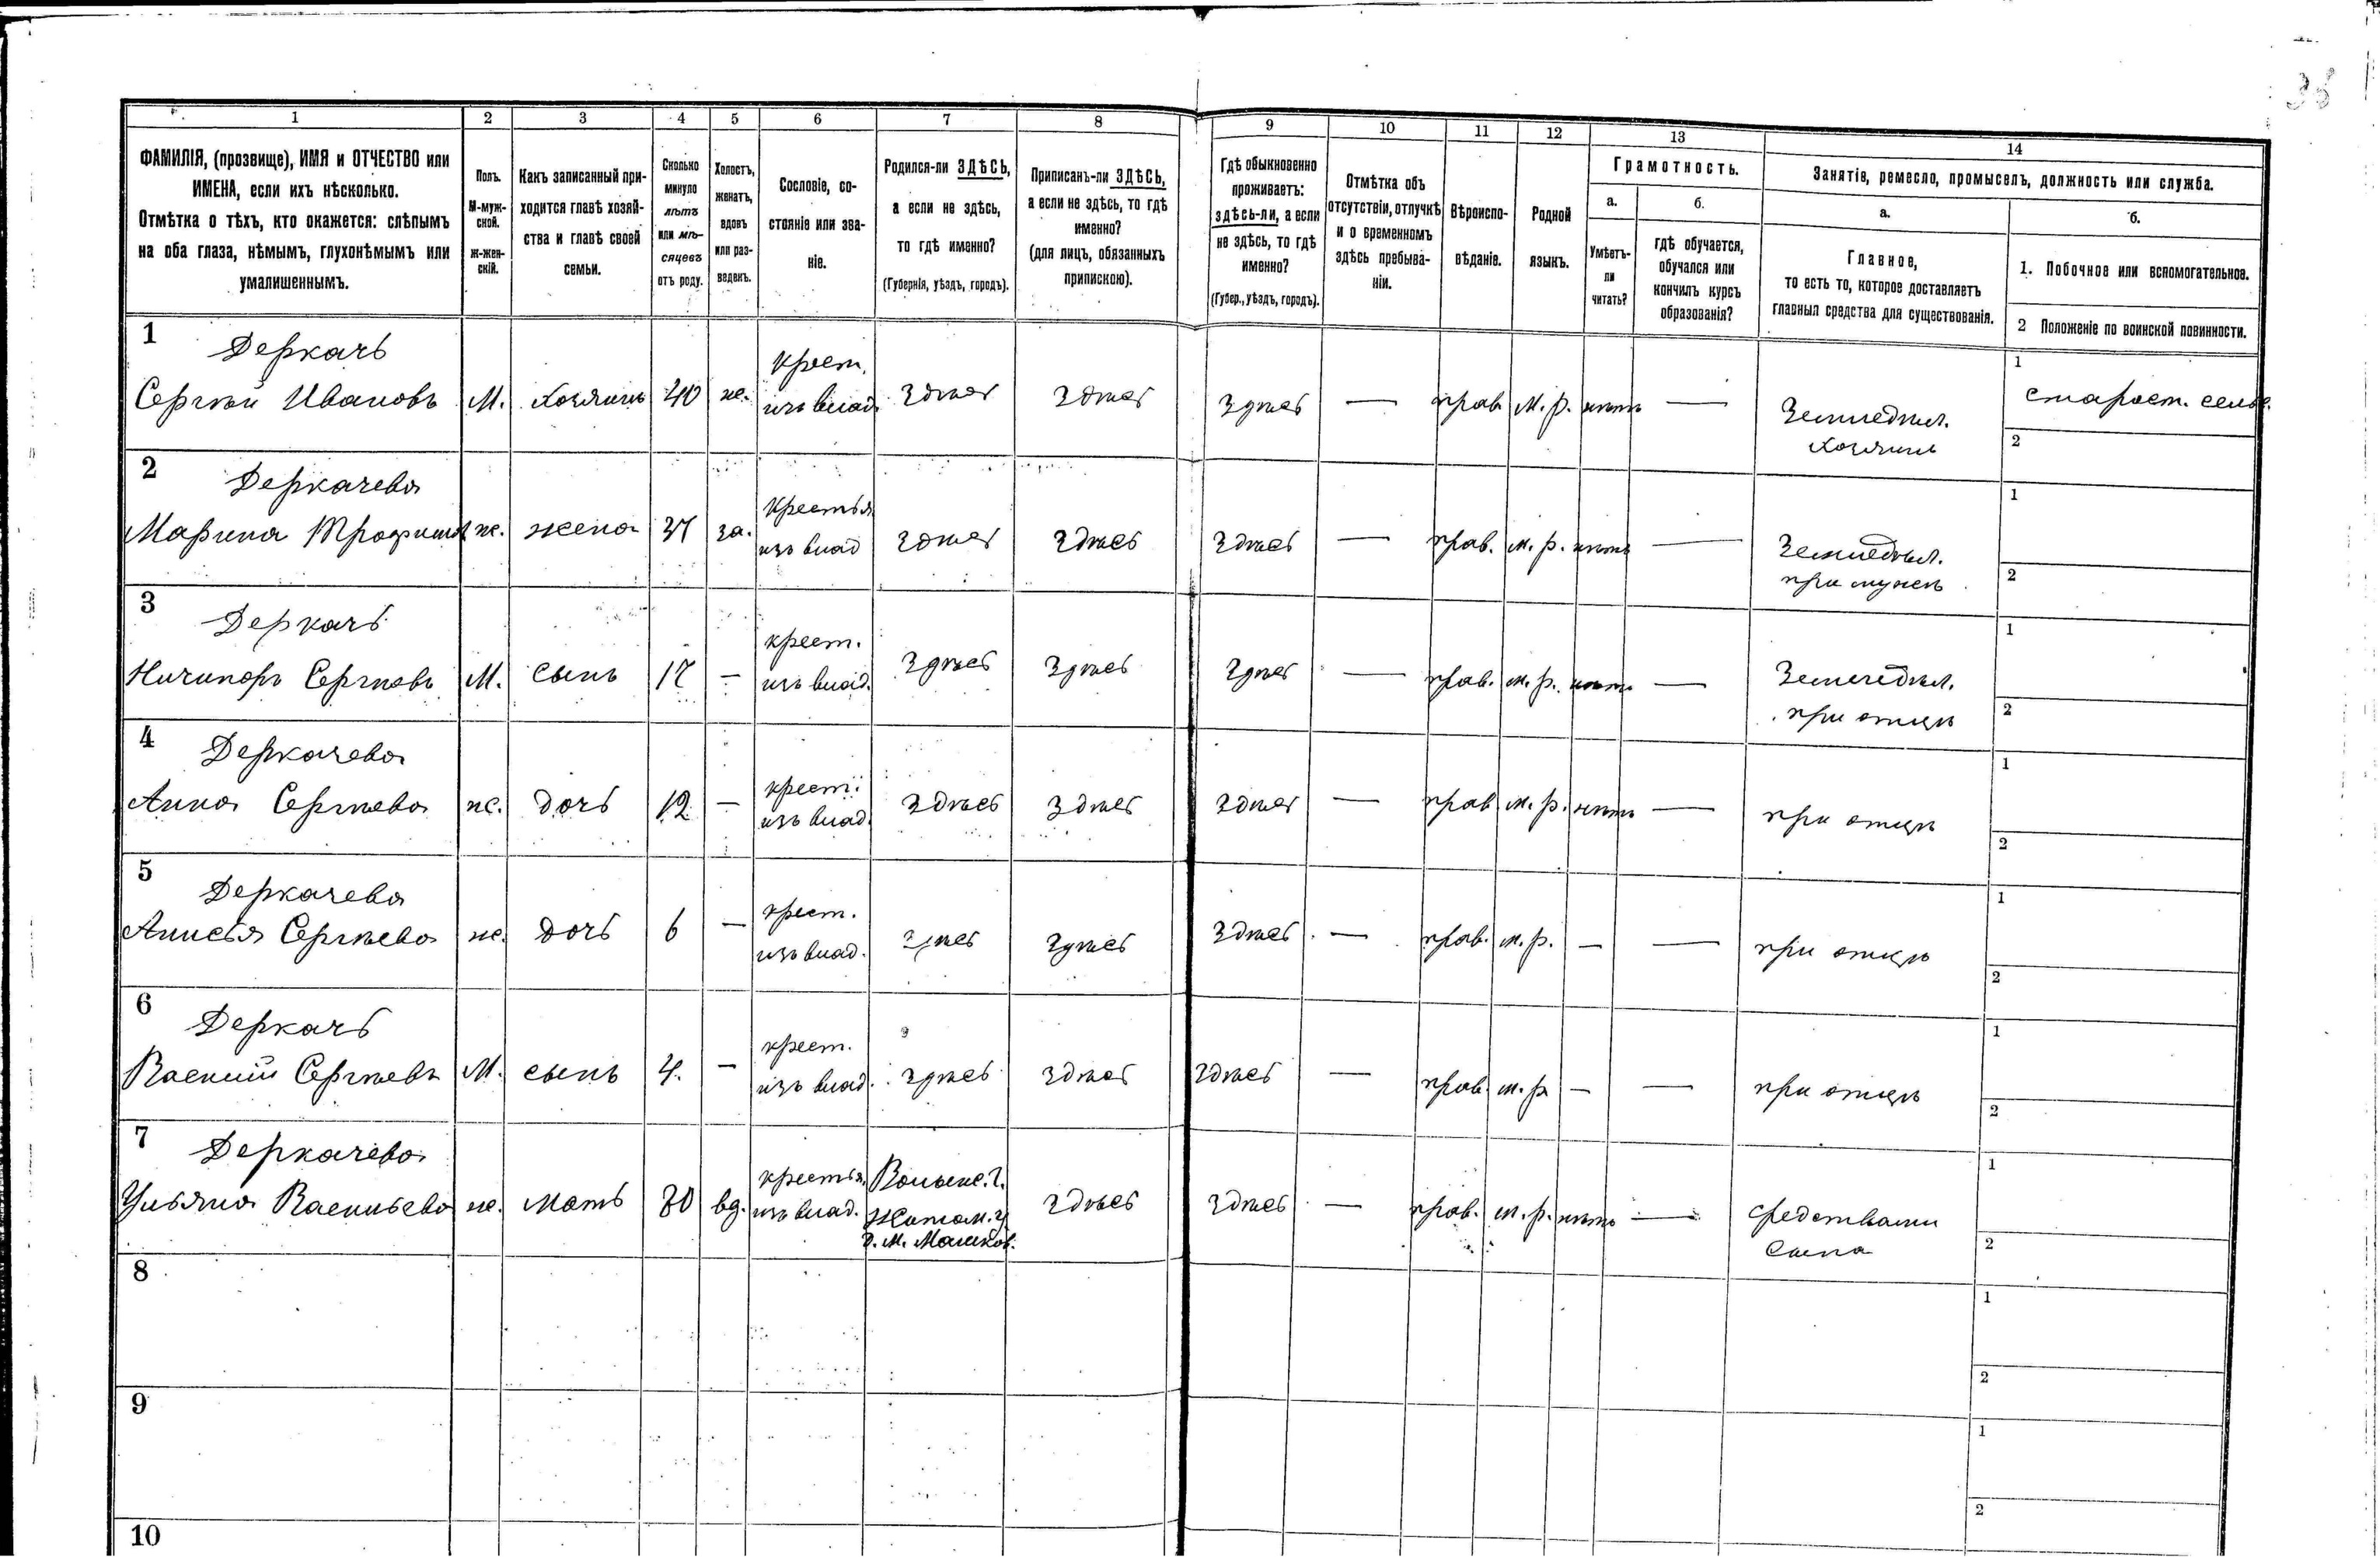 36
1 2 3 4 5 6 7 8 9 10 11 12 13 14
ФАМИЛІЯ, (прозвище), ИМЯ и ОТЧЕСТВО или
ИМЕНА, если ихъ нѣсколько.
Отмѣтка о тѣхъ, кто окажется: слѣпымъ
на оба глаза, нѣмымъ, глухонѣмымъ или
умалишеннымъ.
Полъ.
М-муж-
ской.
Ж-жен-
скій.
Какъ записанный при-
ходится главѣ хозяй-
ства и главѣ своей
семьи.
Сколько
минуло
лѣтъ
или мѣ-
сяцевъ
отъ роду.
Холостъ,
женатъ,
вдовъ
или раз-
веденъ.
Сословіе, со-
стояніе или зва-
ніе.
Родился-ли ЗДѢСЬ,
а если не здѣсь,
то гдѣ именно?
(Губернія, уѣздъ, городъ).
Приписанъ-ли ЗДѢСЬ,
а если не здѣсь, то гдѣ
именно?
(для лицъ, обязанныхъ
припискою).
Гдѣ обыкновенно
проживаетъ:
здѣсь-ли, а если
не здѣсь, то гдѣ
именно?
(Губер., уѣздъ, городъ).
Отмѣтка объ
отсутствіи, отлучкѣ
и о временномъ
здѣсь пребыва-
ніи.
Вѣроиспо-
вѣданіе.
Родной
языкъ.
Грамотность.
а.
Умѣетъ-
ли
читать?
б.
гдѣ обучается,
обучался или
кончилъ курсъ
образованія?
Занятіе, ремесло, промыселъ, должность или служба.
а.
Главное,
то есть то, которое доставляетъ
главныя средства для существованія.
б.
1. Побочное или вспомогательное.
2 Положеніе по воинской повинности.
1 Деркачь
Сергѣй Ивановъ М. хозяинъ 40 же. крест. изъ влад. здѣсь здѣсь здѣсь — прав. м. р. нѣтъ — Земледѣл. хозяинъ
1 старост. сельс.
2
2 Деркачева
Марина Трофимов ж. жена 37 за. крестья изъ влад здѣсь здѣсь здѣсь — прав. м. р. нѣтъ — Земледѣл. при мужѣ
1
2
3 Деркачь
Ничипоръ Сергѣевъ М. сынъ 17 — крест. изъ влад. здѣсь здѣсь здѣсь — прав. м. р. нѣтъ — Земледѣл. при отцѣ
1
2
4 Деркачева
Анна Сергѣева ж. дочь 12 — крест. изъ влад. здѣсь здѣсь здѣсь — прав. м. р. нѣтъ — при отцѣ
1
2
5 Деркачева
Анисья Сергѣева ж. дочь 6 — крест. изъ влад. здѣсь здѣсь здѣсь — прав. м. р. — — при отцѣ
1
2
6 Деркачь
Василій Сергѣевъ М. сынъ 4. — крест. изъ влад. здѣсь здѣсь здѣсь — прав. м. р — — при отцѣ
1
2
7 Деркачева
Ульяна Васильева ж. мать 80 вд. крестья. изъ влад. Волынс. г. Житом. у. здѣсь здѣсь — прав. м. р. нѣтъ — средствами сына
1
2
8
1
2
9
1
2
10